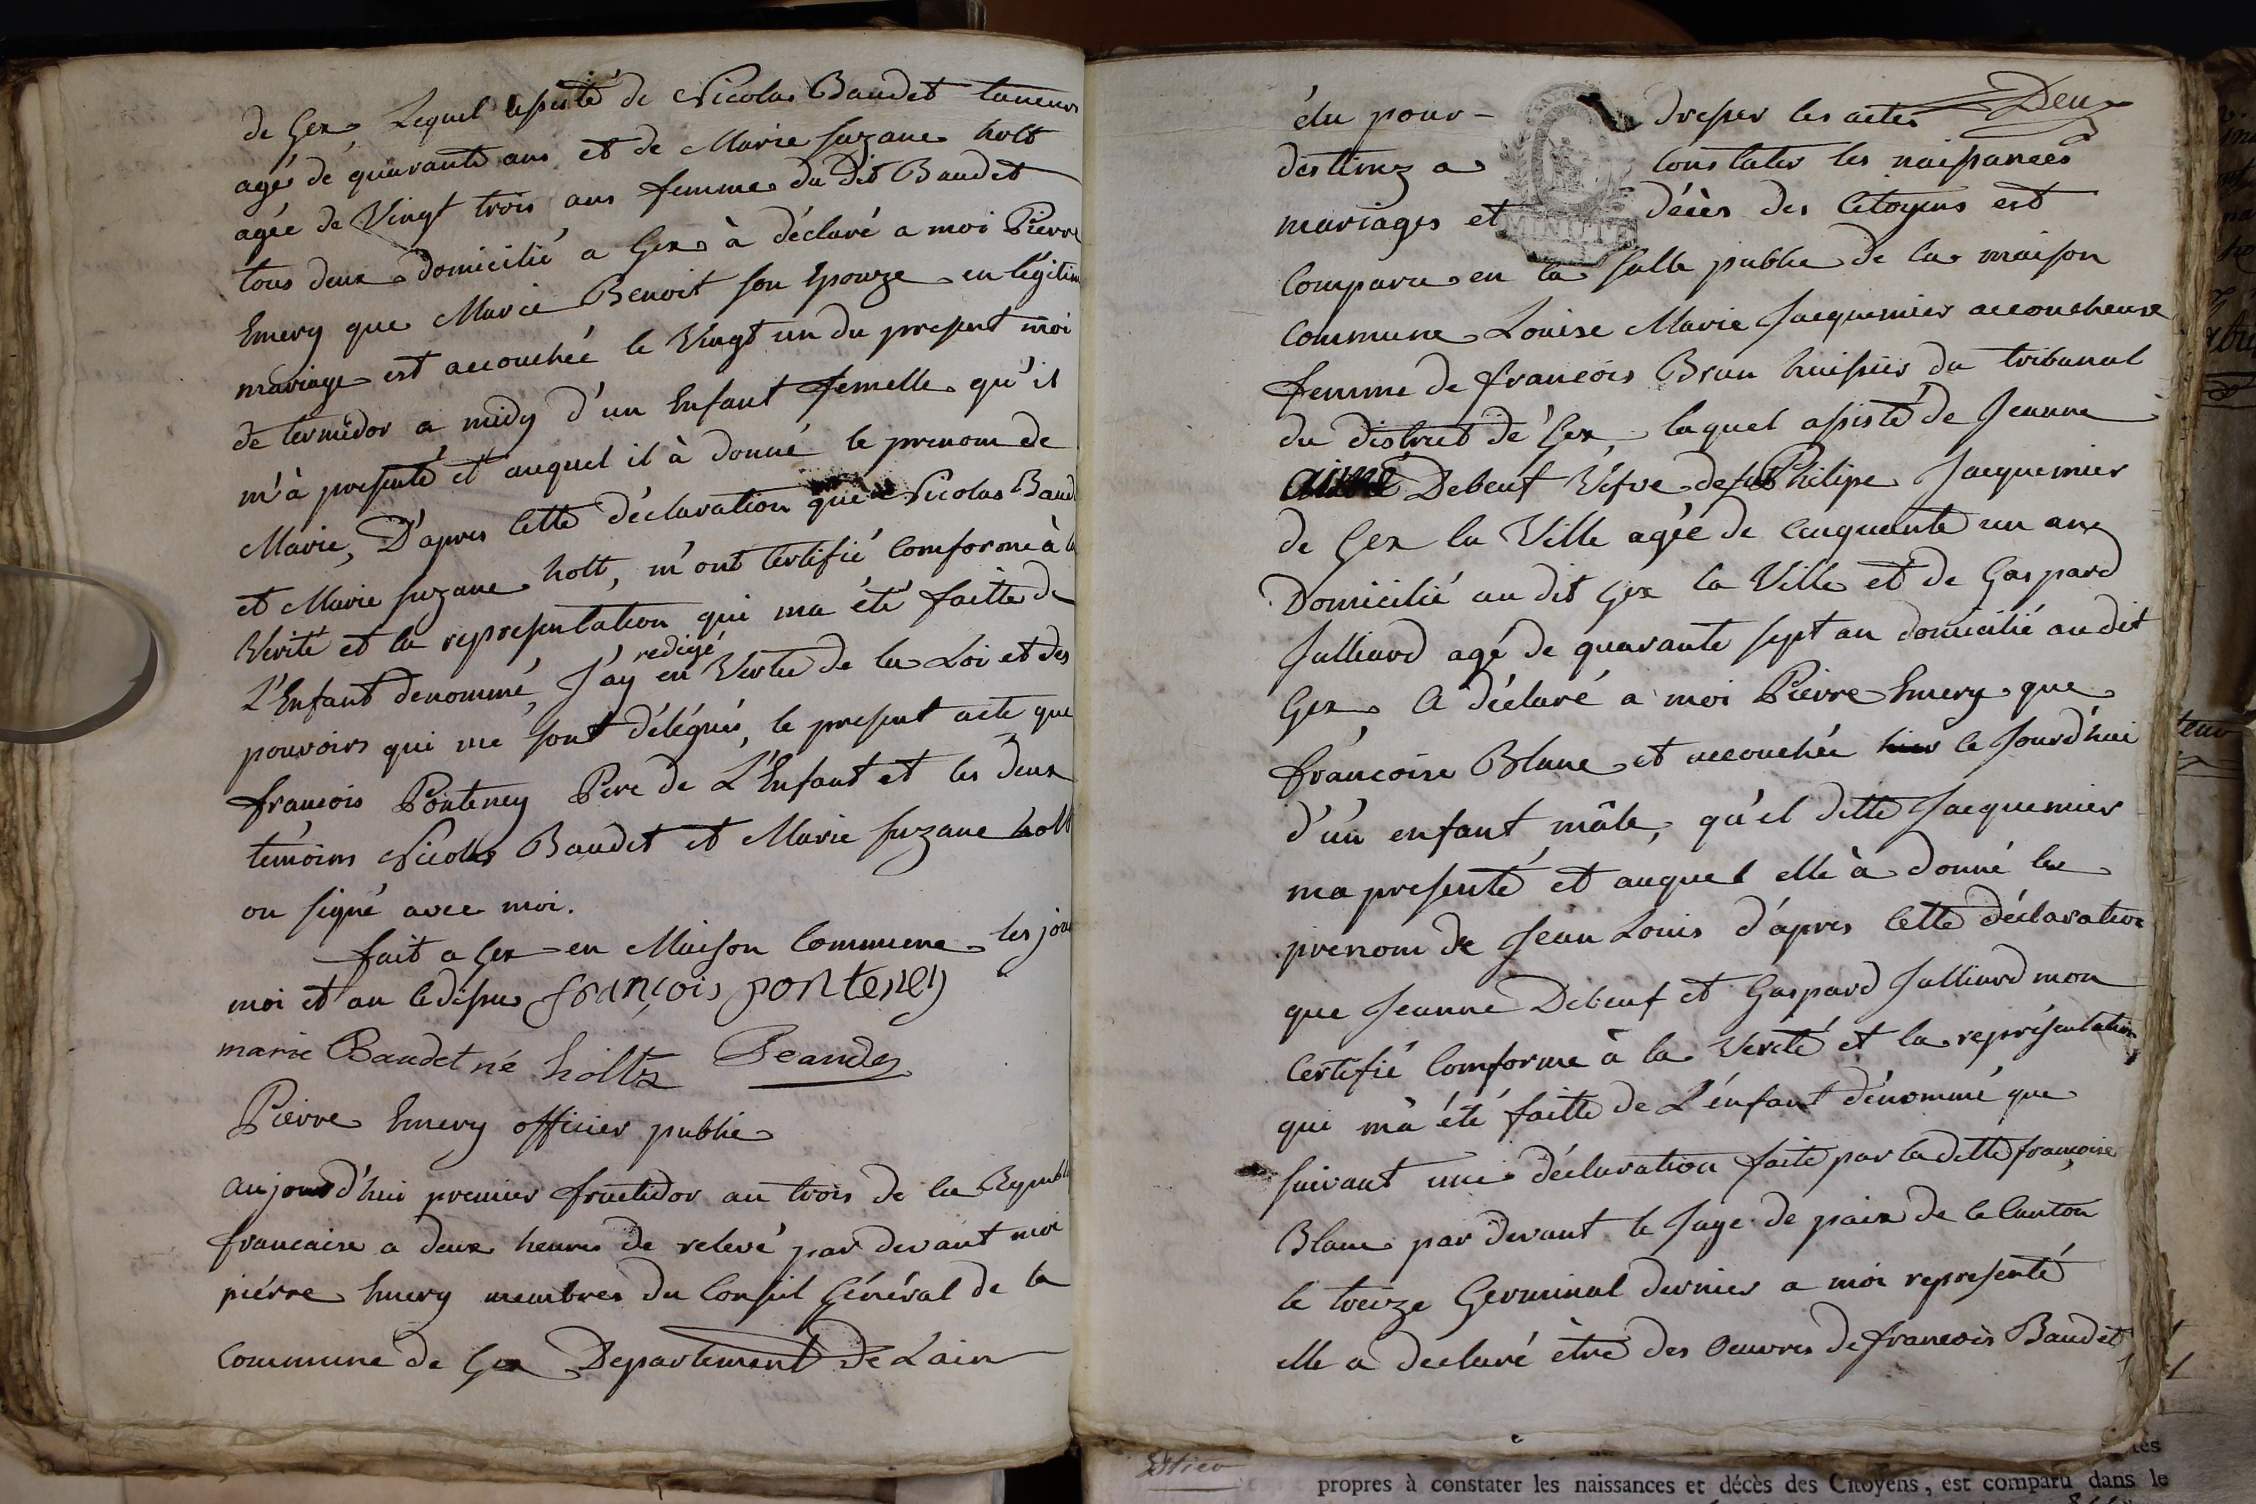 de Gex, Lequel assisté de Nicolas Baudet taneurs
agé de quarante ans et de Marie suzane holt
agée de Vingt trois ans femme du dit Baudet
tous deux domicilié a Gex à déclaré a moi Pierre
Emery que Marie Benoit son Epouze en légitim
mariage est accouchée le Vingt un du present moi
de termidor a midy d'un Enfant femelle qu'il
m'à presenté et auquel il à donné le prenom de
Marie, D'apres Cette déclaration que Nicolas Baud
et Marie suzane holt, m'ont Certifié Comforme à la
Vérité et la representation qui ma été faitte de
L'Enfant denommé, J'ay redigé en Vertu de la Loi et des
pouvoirs qui me sont délégués, le present acte que
françois Ponteney Pere de L'Enfant et les deux
temoins Nicolas Baudet et Marie suzane holt
on signé avec moi.
fait a Gex en Maison Commune les jour
moi et an ledessus françois ponteney
marie Baudet né holtz Beaudet
Pierre Emery officier public
aujourd'hui premier fructidor an trois de la Republi
francaise a deux heures de relevé par devant moi
piérre Emery membres du Conseil Général de la
Commune de Gex Departement de L'ain
élu pour - dresser les actes
destinez a Constater les naissances
MINUTE
mariages et décès des Citoyens est
Comparu en la salle public de la maison
Commune Louise Marie Jacquemier accoucheuse
femme de francois Brun huissier du tribunal
du district de Gex, laquel assisté de Jeanne
Debeuf Véfve de Philipe Jacquemier
de Gex la Ville agée de Cinquante un ans
Domicilié au dit Gex la Ville et de Gaspard
Julliard agé de quarante sept an domicilié audit
Gex, A déclaré a moi Pierre Emery que
francoise Blanc et accouchée hier le Jourd'hui
d'un enfant mâle, qu'el ditte Jacquemier
ma presenté et auquel elle à donné le
prenom de Jean Louis d'apres Cette déclaration
que Jeanne Debeuf et Gaspard Julliard mon
Certifié Comforme à la Verité et la représentation
qui mà été faitte de L'énfant dénommé que
suivant une déclaration faite par la ditte francoise
Blanc par devant le Juge de paix de ce Canton
le treize Germinal dernier a moi representé
elle a declaré être des Oeuvres de francois Baudet
propres à constater les naissances et décès des Citoyens, est comparu dans le